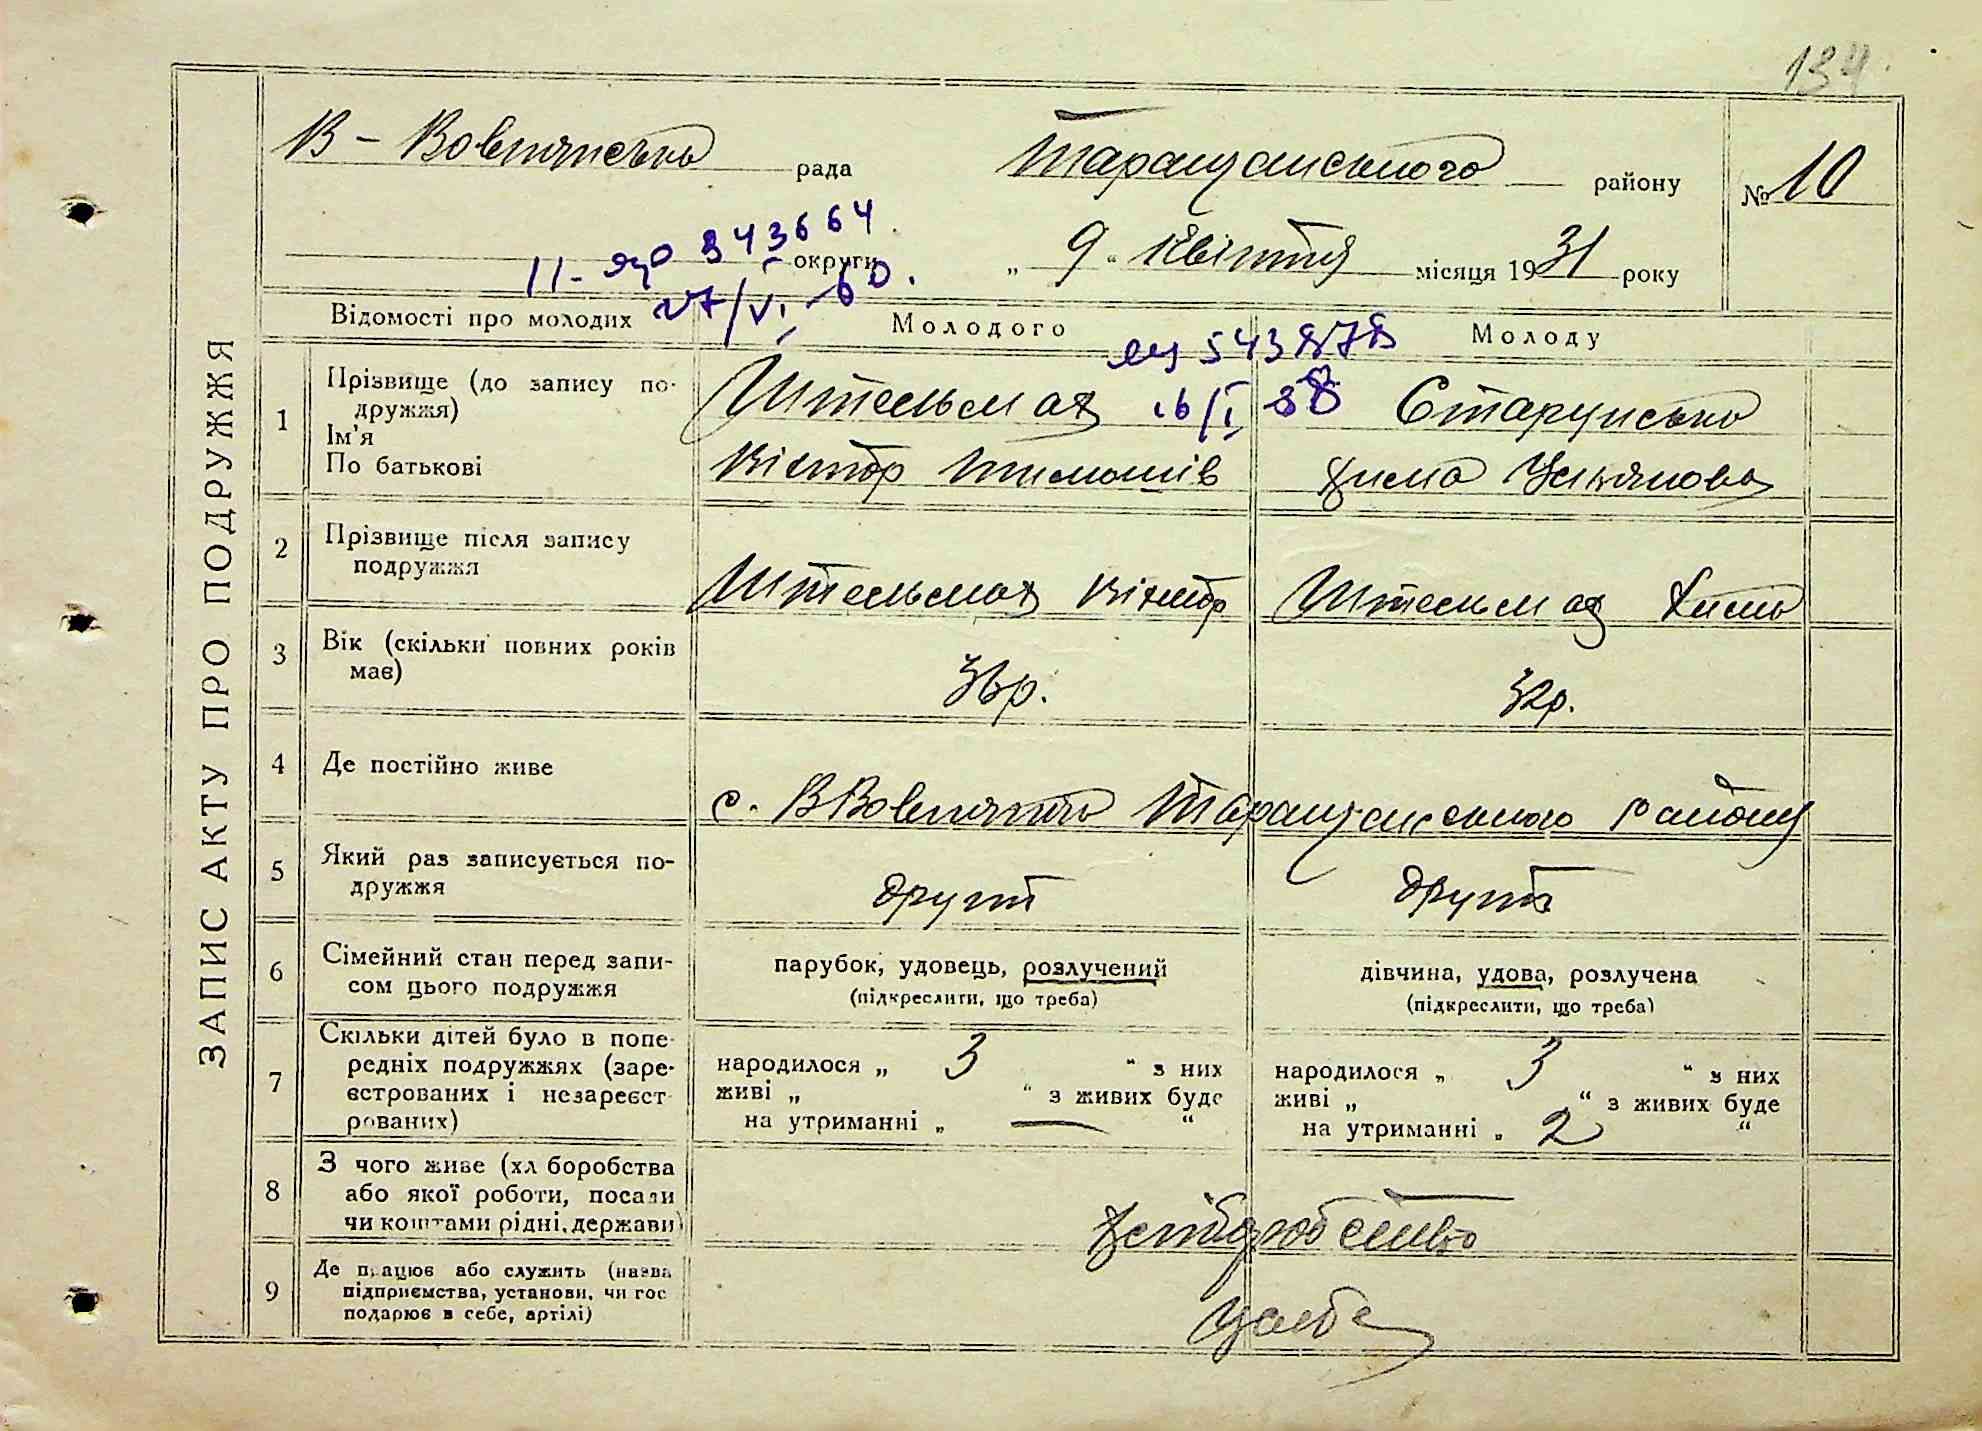 134
ЗАПИС АКТУ ПРО ПОДРУЖЖЯ
В - Вовнянська рада
Таращанського району
№ 10
округи
„ 9 “ квітня місяця 1931 року
11- 843664
27/VI 60.
Відомості про молодих
Молодого
Молоду
543878
16/I 38
1
Прізвище (до запису по-
дружжя)
Ім'я
По батькові
Штельмах
Віктор Тимошів
Старунська
Хима Устянова
2
Прізвище після запису
подружжя
Штельмах Віктор
Штельмах Хима
3
Вік (скільки повних років
має)
36р.
32р.
4
Де постійно живе
с. ВВовнянка Таращанського району
5
Який раз записується по-
дружжя
другий
другий
6
Сімейний стан перед запи-
сом цього подружжя
парубок, удовець, розлучений
(підкреслити, що треба)
дівчина, удова, розлучена
(підкреслити, що треба)
7
Скільки дітей було в попе-
редніх подружжях (заре-
єстрованих і незареєст-
рованих)
народилося „ 3 “ з них
живі „ “ з живих буде
на утриманні „ — “
народилося „ 3 “ з них
живі „ “ з живих буде
на утриманні „ 2 “
8
З чого живе (хліборобства
або якої роботи, посади
чи коштами рідні, держави)
9
Де працює або служить (назва
підприємства, установи, чи гос
подарює в себе, артілі)